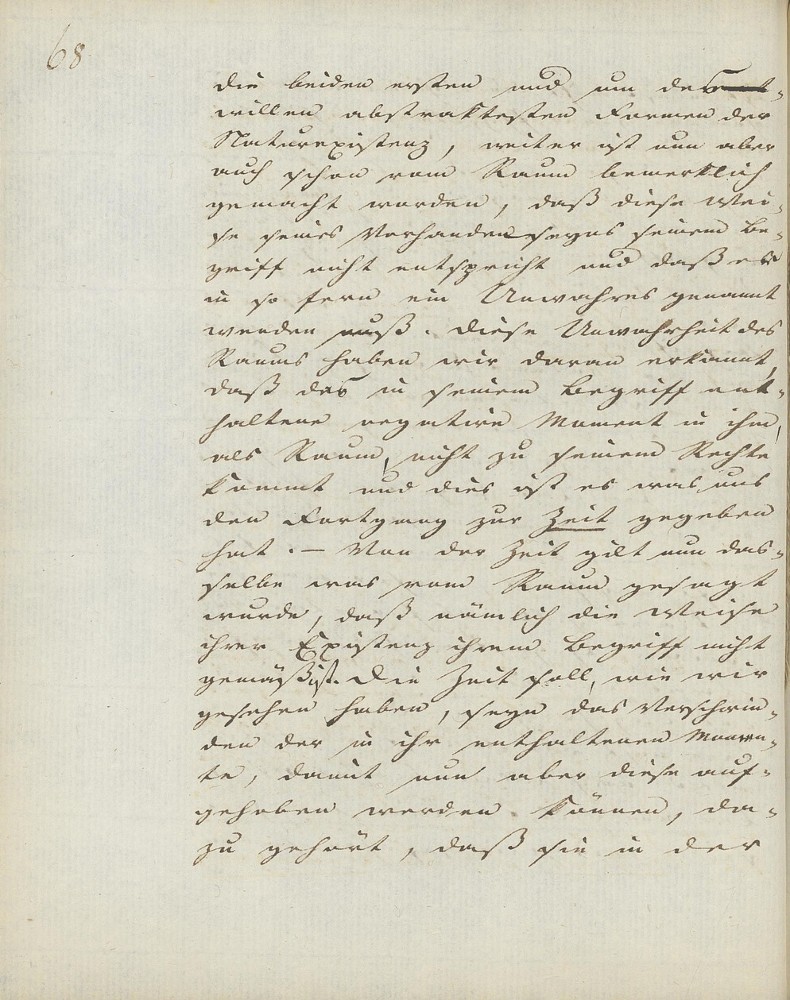 68
die beiden ersten und um des
willen abstraktesten Formen der
Naturexistenz, weiter ist nun aber
auch schon vom Raum bemerklich
gemacht worden, daß diese Wei-
se seines Vorhandenseyns seinem Be-
griff nicht entspricht und daß er
in so fern ein Unwahres genannt
werden muß. Diese Unwahrheit des
Raums haben wir daran erkannt,
daß das in seinem Begriff ent-
haltene negative Moment in ihm,
als Raum, nicht zu seinem Rechte
kommt und dies ist es was uns
den Fortgang zur Zeit gegeben
hat. – Von der Zeit gilt nun das-
selbe was vom Raum gesagt
wurde, daß nämlich die Weise
ihrer Existenz ihrem Begriff nicht
gemäß ist. Die Zeit soll, wie wir
gesehen haben, seyn das Verschwin-
den der in ihr enthaltenen Momen-
te, damit nun aber diese auf-
gehoben werden können, da-
zu gehört, daß sie in der